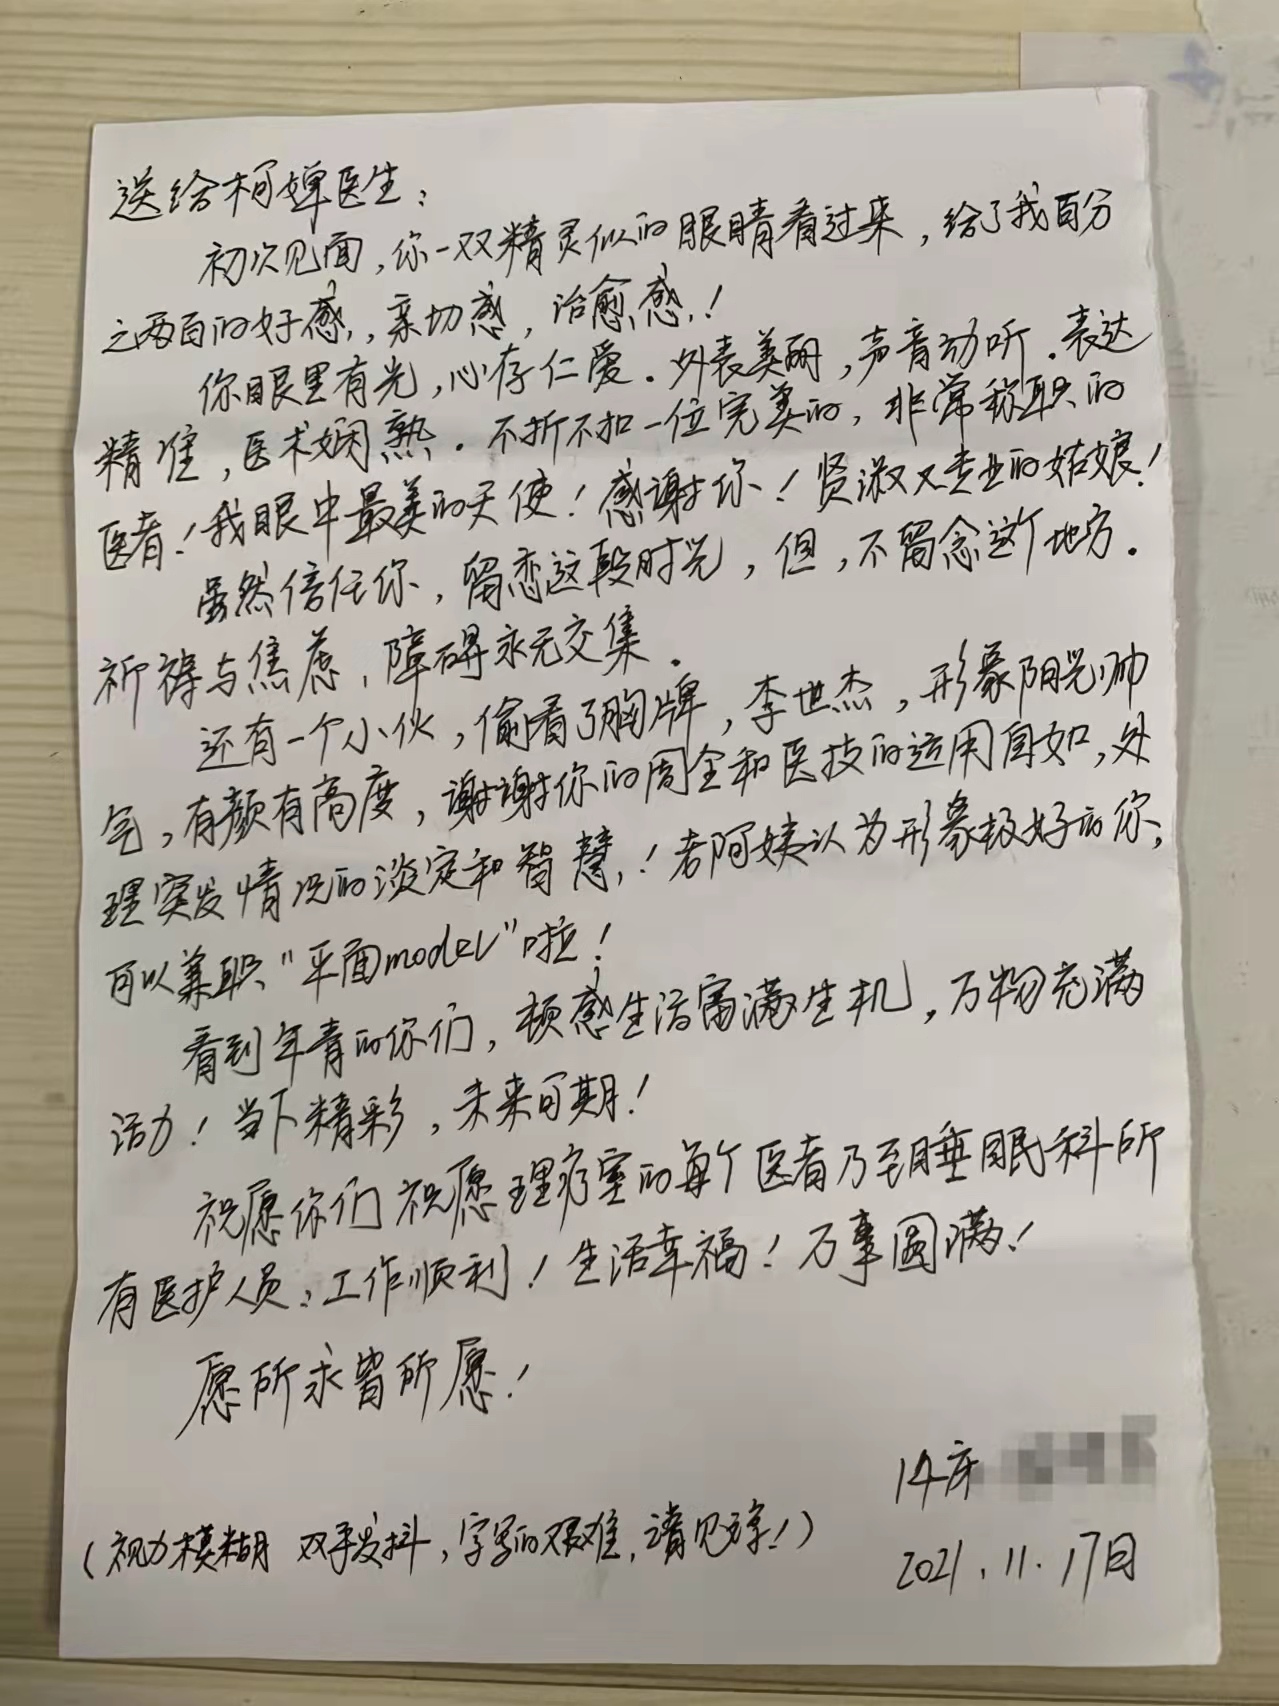 送给柯婵医生：
初次见面，你一双精灵似的眼睛看过来，给了我百分
之两百的好感，亲切感，治愈感！
你眼里有光，心存仁爱。外表美丽，声音动听。表达
精准，医术娴熟。不折不扣一位完美的，非常称职的
医者！我眼中最美的天使！感谢你！贤淑又专业的姑娘！
虽然信任你，留恋这段时光，但，不留念这个地方。
祈祷与焦虑，障碍永无交集。
还有一个小伙，偷看了胸牌，李世杰，形象阳光帅
气，有颜有高度，谢谢你的周全和医技的运用自如，处
理突发情况的淡定和智慧！老阿姨认为形象极好的你，
可以兼职“平面model”啦！
看到年青的你们，顿感生活富满生机，万物充满
活力！当下精彩，未来可期！
祝愿你们 祝愿理疗室的每个医者乃至睡眠科所
有医护人员：工作顺利！生活幸福！万事圆满！
愿所求皆所愿！
14床
（视力模糊 双手发抖，字写的艰难，请见谅！）
2021.11.17日